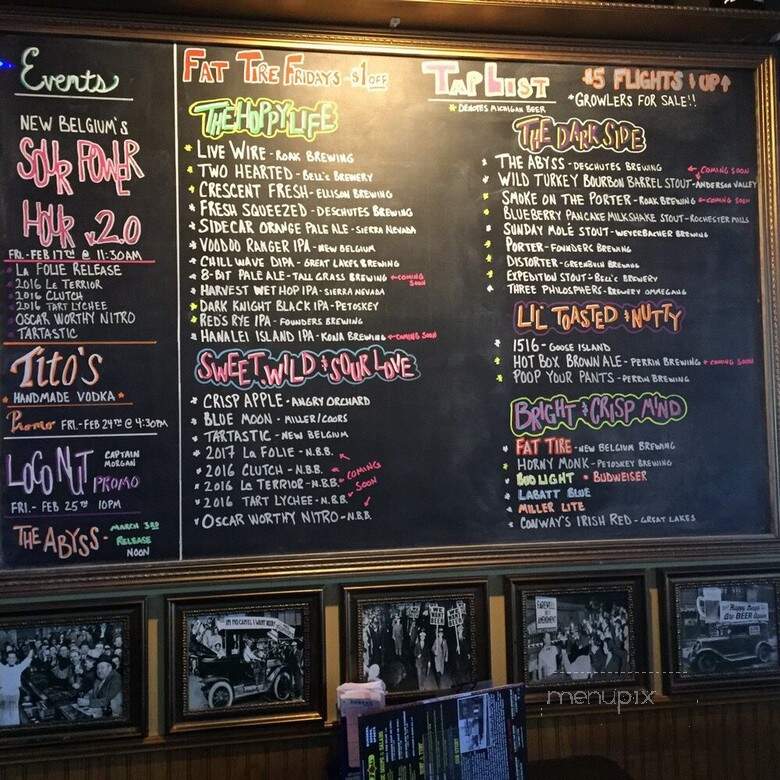 Events
NEW BELGIUM'S
SOUR POWER
HOUR v2.0
FRI-FEB 17TH @ 11:30AM
LA FOLIE RELEASE
2016 LE TERRIOR
2016 CLUTCH
2016 TART LYCHEE
OSCAR WORTHY NITRO
TARTASTIC
TITO'S
HANDMADE VODKA
PROMO FRI-FEB 24TH @ 4:30PM
LOCO NUT CAPTAIN MORGAN
PROMO
FRI- FEB 25TH 10PM
THE ABYSS- MARCH 3RD
RELEASE
NOON
FAT TIRE FRIDAYS -$1 OFF
TAP LIST
*DENOTES MICHIGAN BEER
$5 FLIGHTS & UP↑
*GROWLERS FOR SALE!!
THE HOPPY LIFE
* LIVE WIRE - ROAK BREWING
* TWO HEARTED - BELL'S BREWERY
* CRESCENT FRESH - ELLISON BREWING
* FRESH SQUEEZED - DESCHUTES BREWING
* SIDECAR ORANGE PALE ALE - SIERRA NEVADA
* VOODOO RANGER IPA - NEW BELGIUM
* CHILL WAVE DIPA - GREAT LAKES BREWING
* 8-BIT PALE ALE - TALL GRASS BREWING ← COMING SOON
* HARVEST WET HOP IPA - SIERRA NEVADA
* DARK KNIGHT BLACK IPA - PETOSKEY
* RED'S RYE IPA - FOUNDERS BREWING
* HANALEI ISLAND IPA - KONA BREWING ← COMING SOON
SWEET, WILD & SOUR LOVE
* CRISP APPLE - ANGRY ORCHARD
* BLUE MOON - MILLER/COORS
* TARTASTIC - NEW BELGIUM
* 2017 LA FOLIE - N.B.B.
* 2016 CLUTCH - N.B.B. ← COMING
* 2016 LA TERRIOR - N.B.B. SOON
* 2016 TART LYCHEE - N.B.B.
* OSCAR WORTHY NITRO - N.B.B.
THE DARK SIDE
* THE ABYSS - DESCHUTES BREWING ← COMING SOON
* WILD TURKEY BOURBON BARREL STOUT - ANDERSON VALLEY
* SMOKE ON THE PORTER - ROAK BREWING ← COMING SOON
* BLUEBERRY PANCAKE MILKSHAKE STOUT - ROCHESTER MILLS
* SUNDAY MOLÉ STOUT - WEYERBACHER BREWING
* PORTER - FOUNDERS BREWING
* DISTORTER - GREENBUSH BREWING
* EXPEDITION STOUT - BELL'S BREWERY
* THREE PHILOSPHERS - BREWERY OMMEGANG
LIL TOASTED & NUTTY
* 1516 - GOOSE ISLAND
* HOT BOX BROWN ALE - PERRIN BREWING ← COMING SOON
* POOP YOUR PANTS - PERRIN BREWING
BRIGHT & CRISP MIND
* FAT TIRE - NEW BELGIUM BREWING
* HORNY MONK - PETOSKEY BREWING
* BUD LIGHT * BUDWEISER
* LABATT BLUE
* MILLER LITE
* CONWAY'S IRISH RED - GREAT LAKES
I'M NO CAMEL I WANT BEER!
WE WANT BEER
FAREWELL
18TH
AMENDMENT
Happy Days
BEER Again
menupix